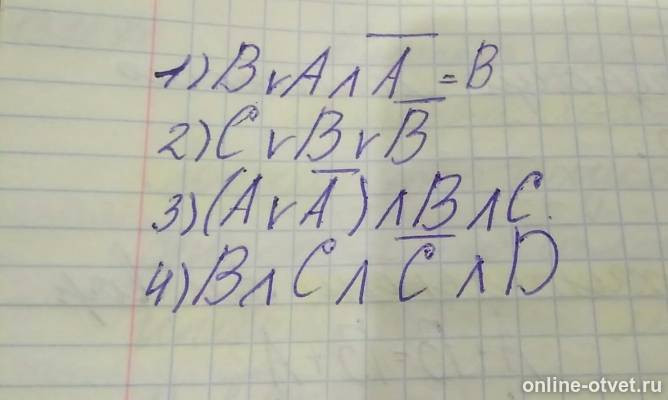 1) B ∨ A ∧ A̅ = B
2) C ∨ B ∨ B̅
3) (A ∨ A̅) ∧ B ∧ C
4) B ∧ C ∧ C̅ ∧ D
online-otvet.ru